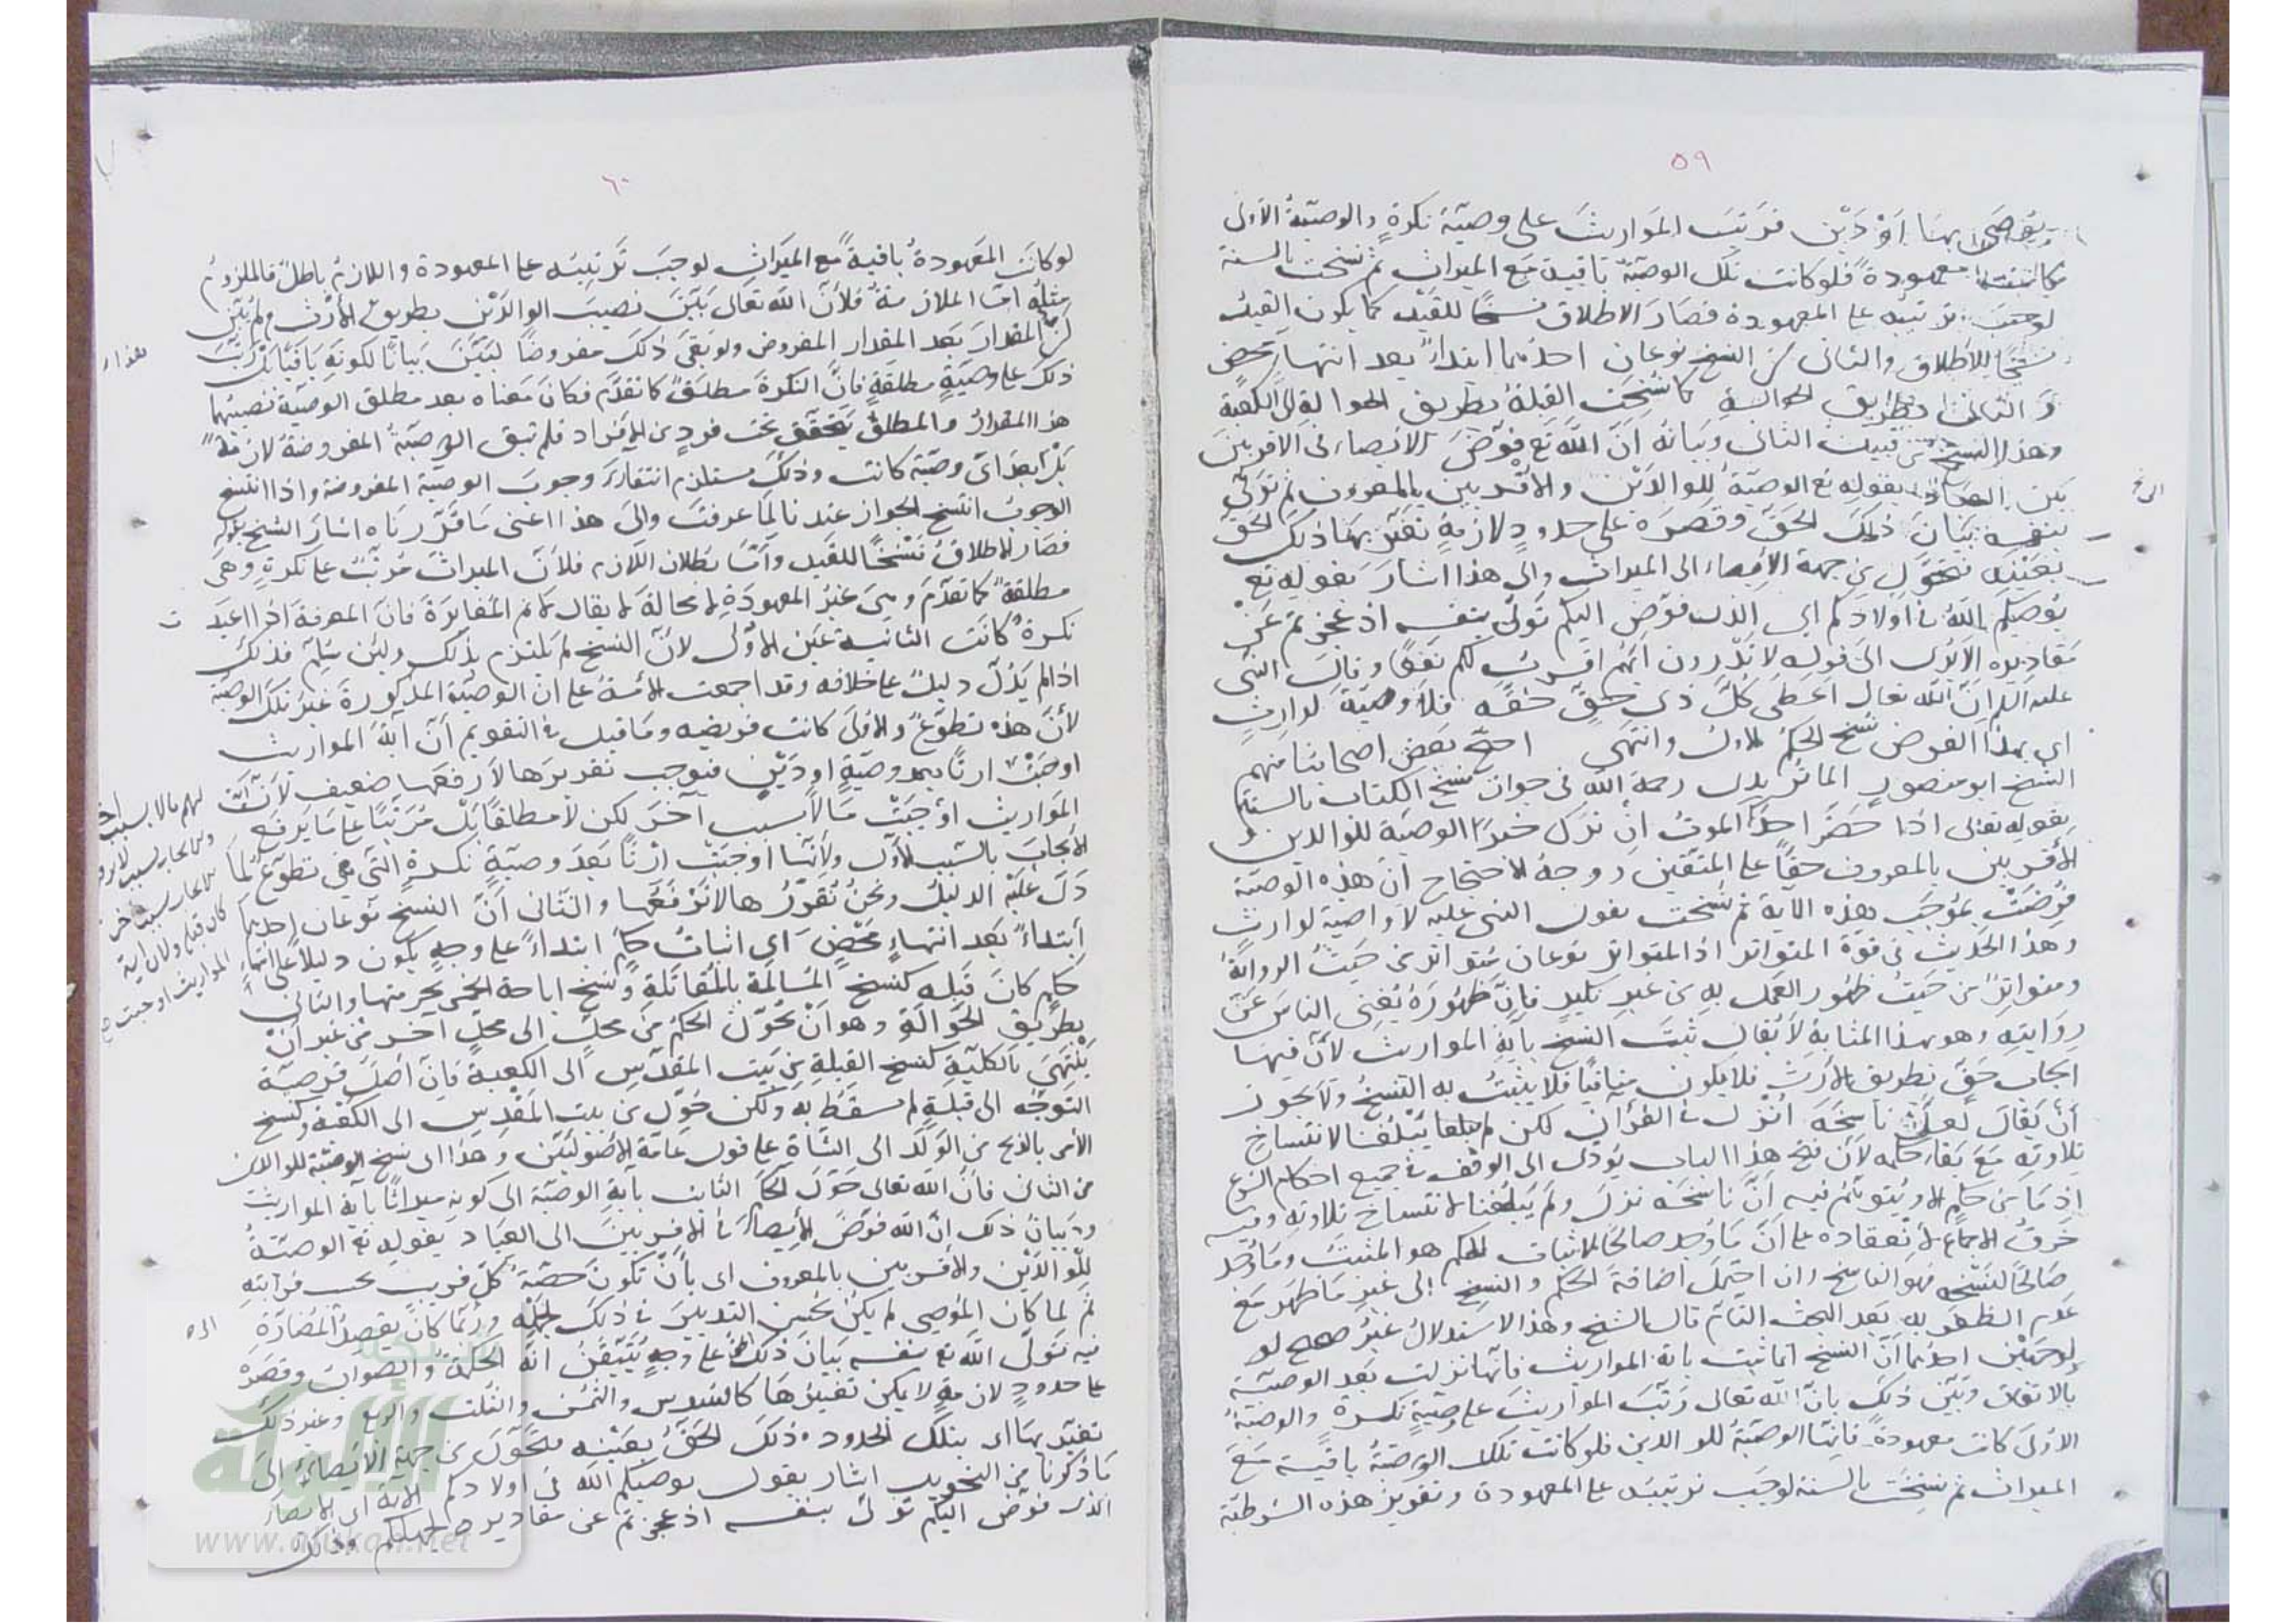 ٥٩
يوصى بها أَوْ دَيْن فرَتبَ المَواريثَ على وصيّة نكرةٍ والوصيّةُ الأولى
كانت معهودةً فلو كانت تلك الوصيّة باقية مَع الميراث ثم نسخت بالسنة
لوجبَ ترتيبُه على المعهودة فصَارَ الاطلاق نسخًا للقَيد كما يكون القيد
نسخًا للاطلاق والثاني أن النسخ نوعان احدُهما ابتداءً بعد انتهاءٍ محضٍ
وَالثاني بطريق الحوالة كما نُسِخَت القبلةُ بطريق الحوالة الى الكعبة
وهذا النسخ من قبيل الثاني وبيانه اَنّ اللّه تع فوّضَ الايصاء في الاقربينَ
الى
الى العباد بقوله تع الوصيّة للوالدَيْن والاقربين بالمعروف ثم تولّى
بنفسه بيَانَ ذلكَ الحَقّ وقصَرَه على حدودٍ لازمةٍ تعيّن بهَا ذلك الحَق
بعَيْنِه تحوّل من جهة الايصاء الى الميراث والى هذا اشارَ بقوله تع
يُوصيكم اللّهُ في اولادكم اي الذى فوّض اليكم تَولّى بنفسه اذ عجزتم عَن
مقاديره الا تَرى الى قوله لا تدْرون ايّهُم اقربُ لكم نَفعًا وقالَ النبيّ
عليه السلم انّ اللّه تعالى اَعطى كُلّ ذى حقٍّ حقّه فلا وصيّة لوارثٍ
اي بهذا الفرض نُسخَ الحكمُ الاول وانتهَى احتجّ بعَض اصحابنا منهم
الشيخ ابو منصور الماتُريدى رحمة اللّه في جواز نسخ الكتاب بالسنة
بقوله تعالى اذا حَضَر احدَكم الموتُ ان تركَ خيرًا الوصيّة للوالدين و
الاقربين بالمعروف حقّاً على المتّقين ووجهُ الاحتجاج انّ هذه الوصيّة
فُرِضَتْ بمُوجَب هذه الآية ثم نسخت بقول النبى عليه لا وصية لوارثٍ
وهذا الحَديث في قوة المتواتر اذا المتواتر نوعان مُتواتر من حَيثُ الروايةُ
ومتواترٌ من حَيثُ ظهُور العمَل بهِ من غَيرِ نكيرٍ فاِنّ ظهُورَهُ يُغنِى الناسَ عَنْ
روَايتِه وهو بهذا المثابة لا يُقال ثبتَ النسخُ بآية المواريث لانّ فيها
ايجابَ حَقّ بطريق الارث فلا يكون منافيًا فلا يثبتُ به النسخُ ولا يجوز
أنْ يَقالَ لعلّ ناسخَه اُنزل في القرآن لكن لم يبلُغنا لانتساخ
تلاوتِه مَعَ بقاء حكمه لأنّ فتح هذا الباب يؤدّى الى الوَقْف في جميع احكام الشرع
اِذ مَا من حكمٍ الا ويُتوهّمُ فيه اَنّ ناسخَه نزلَ ولَم يَبلُغنا لانتساخ تلاوته وفيه
خَرقُ الاجماع لانعقاده على اَنّ مَا وُجد صالحًا لاثبات الحكم هو المثبتُ ومَا وُجد
صَالحًا لنسخه فهو الناسخ وان احتملَ اضافة الحكم والنسخ الى غَيرِ مَا ظهَر مَع
عَدم الظفر به بَعد البحث التام قالَ الشيخ وهذا الاستدلالُ غيرُ صحيح لو
لوجهَيْن احدُهما اَنّ النسخ انما ثبت باية المواريث فانها نزلت بَعد الوصيّة
بالاتفاق وبَيّنَ ذلك بانّ اللّه تعالى رَتّبَ المواريثَ على وصيّةٍ نكرةٍ والوصيّةُ
الاولى كانت معهودةً فانها الوصيّةُ للوالدين فلو كانت تلك الوصيّةُ باقيةً مَعَ
الميراث ثم نُسِخَت بالسنة لوجَبَ ترتيبُه على المعهودة وتقرير هذه الشرطيّة
٦٠
لو كانَت المعَهودةُ باقيةً مَع الميَراثِ لوجبَ ترتيبُه على المعهودة واللازمُ باطلٌ فالملزومُ
مثلُه اَمّا الملازمةُ فلأنّ اللّه تعَالى بَيّنَ نصيبَ الوالدَيْن بطريق الارْث ولم يُبَيّن
مقدار
لَهُ المقدارَ بَعد المقدار المفروض ولو بقىَ ذلكَ مفروضًا لبَيّنَ بَيانًا لكونِهِ بَاقيًا بل رَتّبَ
ذلكَ على وصيّةٍ مطلقةٍ فانّ النكرةَ مطلقَةٌ كما تقدّمَ فكانَ مَعناه بعد مطلق الوصيّة نصيبُهما
هذا المقدارُ والمطلقُ يَتحقّق تحت فردٍ من الافراد فلم تبق الوصيّةُ المفروضةُ لازمةً
بَلْ بَعدَ اىّ وصيّة كانت وذلكَ مستلزم انتفاءَ وجوبَ الوصيّة المفروضة واذا انتسخ
الوجوبُ انتسخ الجواز عندنا لِمَا عرفتَ والَى هذا اعنى مَا قَرّرنَاه اشارَ الشيخ بقوله
فصَارَ الاطلاقُ نَسْخًا للقَيد وأمّا بُطلان اللّازم فلأنّ الميراثَ مُرتّبٌ على نكرةٍ وهىَ
مطلقةٌ كما تقدّمَ وهىَ غيرُ المعهودَة لا محالةَ لا يقال لا ثَم المُغايَرَةُ فانّ المعرفةَ اذا اُعيدَت
نكرةً كانَت الثانيةُ عَينَ الاوْلى لانّ الشيخ لم يَلتزم بذلك ولئن سُلِّمَ فذلك
اذا لم يَدُلّ دليلٌ على خلافه وقد اجمعت الامّةُ على ان الوصيّةَ المذكورةَ غيرُ تلكَ الوصيّة
لأنّ هذه تطوّعٌ والأولىَ كانت فريضةً ومَا قيلَ في التقويم أنّ آيةَ المواريث
اوجَبَتْ ارثًا بعد وصيّةٍ او دَيْنٍ فيوجب تقريرَها لا رَفعَها ضعيف لانّ آيةَ
المَواريث اوْجَبَتْ مَالاً بسببٍ آخرَ لكن لا مطلقًا بَلْ مُرَتّبًا على مَا يَرفَع
الايجابَ بالسّبب الاوّل ولانّها اوجَبَتْ ارثًا بَعدَ وصيّةٍ نكرةٍ التى هى تطوّعٌ لمَا
دَلّ عليْه الدليلُ ونحنُ نُقرّرُها لا نَرْفَعُها والثانى اَنّ النسخ نَوعان احدُهما
ابتداءً بَعد انتهاءٍ مَحْضٍ اى اثباتُ حكمٍ ابتداءً على وجهٍ يكون دليلاً على انتهاءِ
حكمٍ كانَ قَبله كنَسخ المُسالَمَة بالمُقاتَلَةِ ونَسخ اباحة الخَمر بتحريمها والثانى
بطريق الحَوالةِ وهو اَنْ يُحَوّلَ الحكمُ مِن محلٍّ الى محلٍّ آخر مِن غير اَنْ
يَنْتَهِىَ بالكلّية كنسخ القبلةِ مِن بَيت المقدّسِ الى الكعبة فانّ اصلَ فرضيّة
التوجّه الى قبلةٍ لم يسقُطْ به ولكن حُوّلَ من بيت المَقْدِس الى الكعبة وكنَسخ
الأمر بالذبح من الوَلَد الى الشّاةِ على قول عَامّة الاُصُوليّين وهَذا اى نسخ الوصيّة للوالدين
من الثانى فانّ اللّه تعالى حَوّلَ الحكمَ الثابت بآيةِ الوصيّة الى كونهِ ميراثًا بآية المواريث
وبيانُ ذلكَ اِنّ اللّه فوّضَ الايصاءَ في الاقربينَ الى العبَاد بقوله تع الوصيّةُ
لِلْوالدَيْن والاقربين بالمعروف اى بأنْ تكونَ حصّةُ كلّ قريبٍ بحسب قرابتِهِ
ثم لما كان المُوصى لم يكن يُحسن التدبيرَ في ذلك لجهْلِه ورُبّما كانَ يقصدُ المُضَارّةَ
فيه تَولّى اللّه تع بنفسه بَيانَ ذلكَ الحق على وجهٍ يُتَيَقّنُ اَنّهُ الحكمةُ والصوابُ وقصَرَهُ
على حدودٍ لازمةٍ لا يمكن تغييرُهَا كالسُدس والثُمُن والثُلث والرُبع وغير ذلكَ
تعيّن بها اى بتلك الحُدودِ ذلكَ الحَقُّ بعَيْنه فتحَوّل من جهةِ الايصاء الى
مَا ذكرنا من التحويل اشار بقوله يوصيكم اللّه في اولادكم الآية اى الايصاءَ
الذى فوّضَ اليكم تولّى بنفسه اذ عجزتم عن مقاديره لجهلكم وذلك
لهم مالا بسبب آخر
كان قبله ولان اية
المواريث اوجبت
شبكة
الألوكة
www.alukah.net